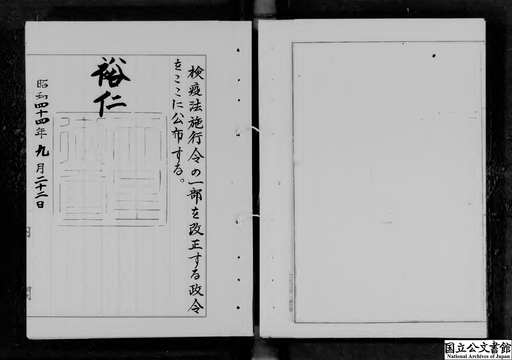 検疫法施行令の一部を改正する政令
をここに公布する。
裕仁
昭和四十四年九月二十二日
国立公文書館
National Archives of Japan